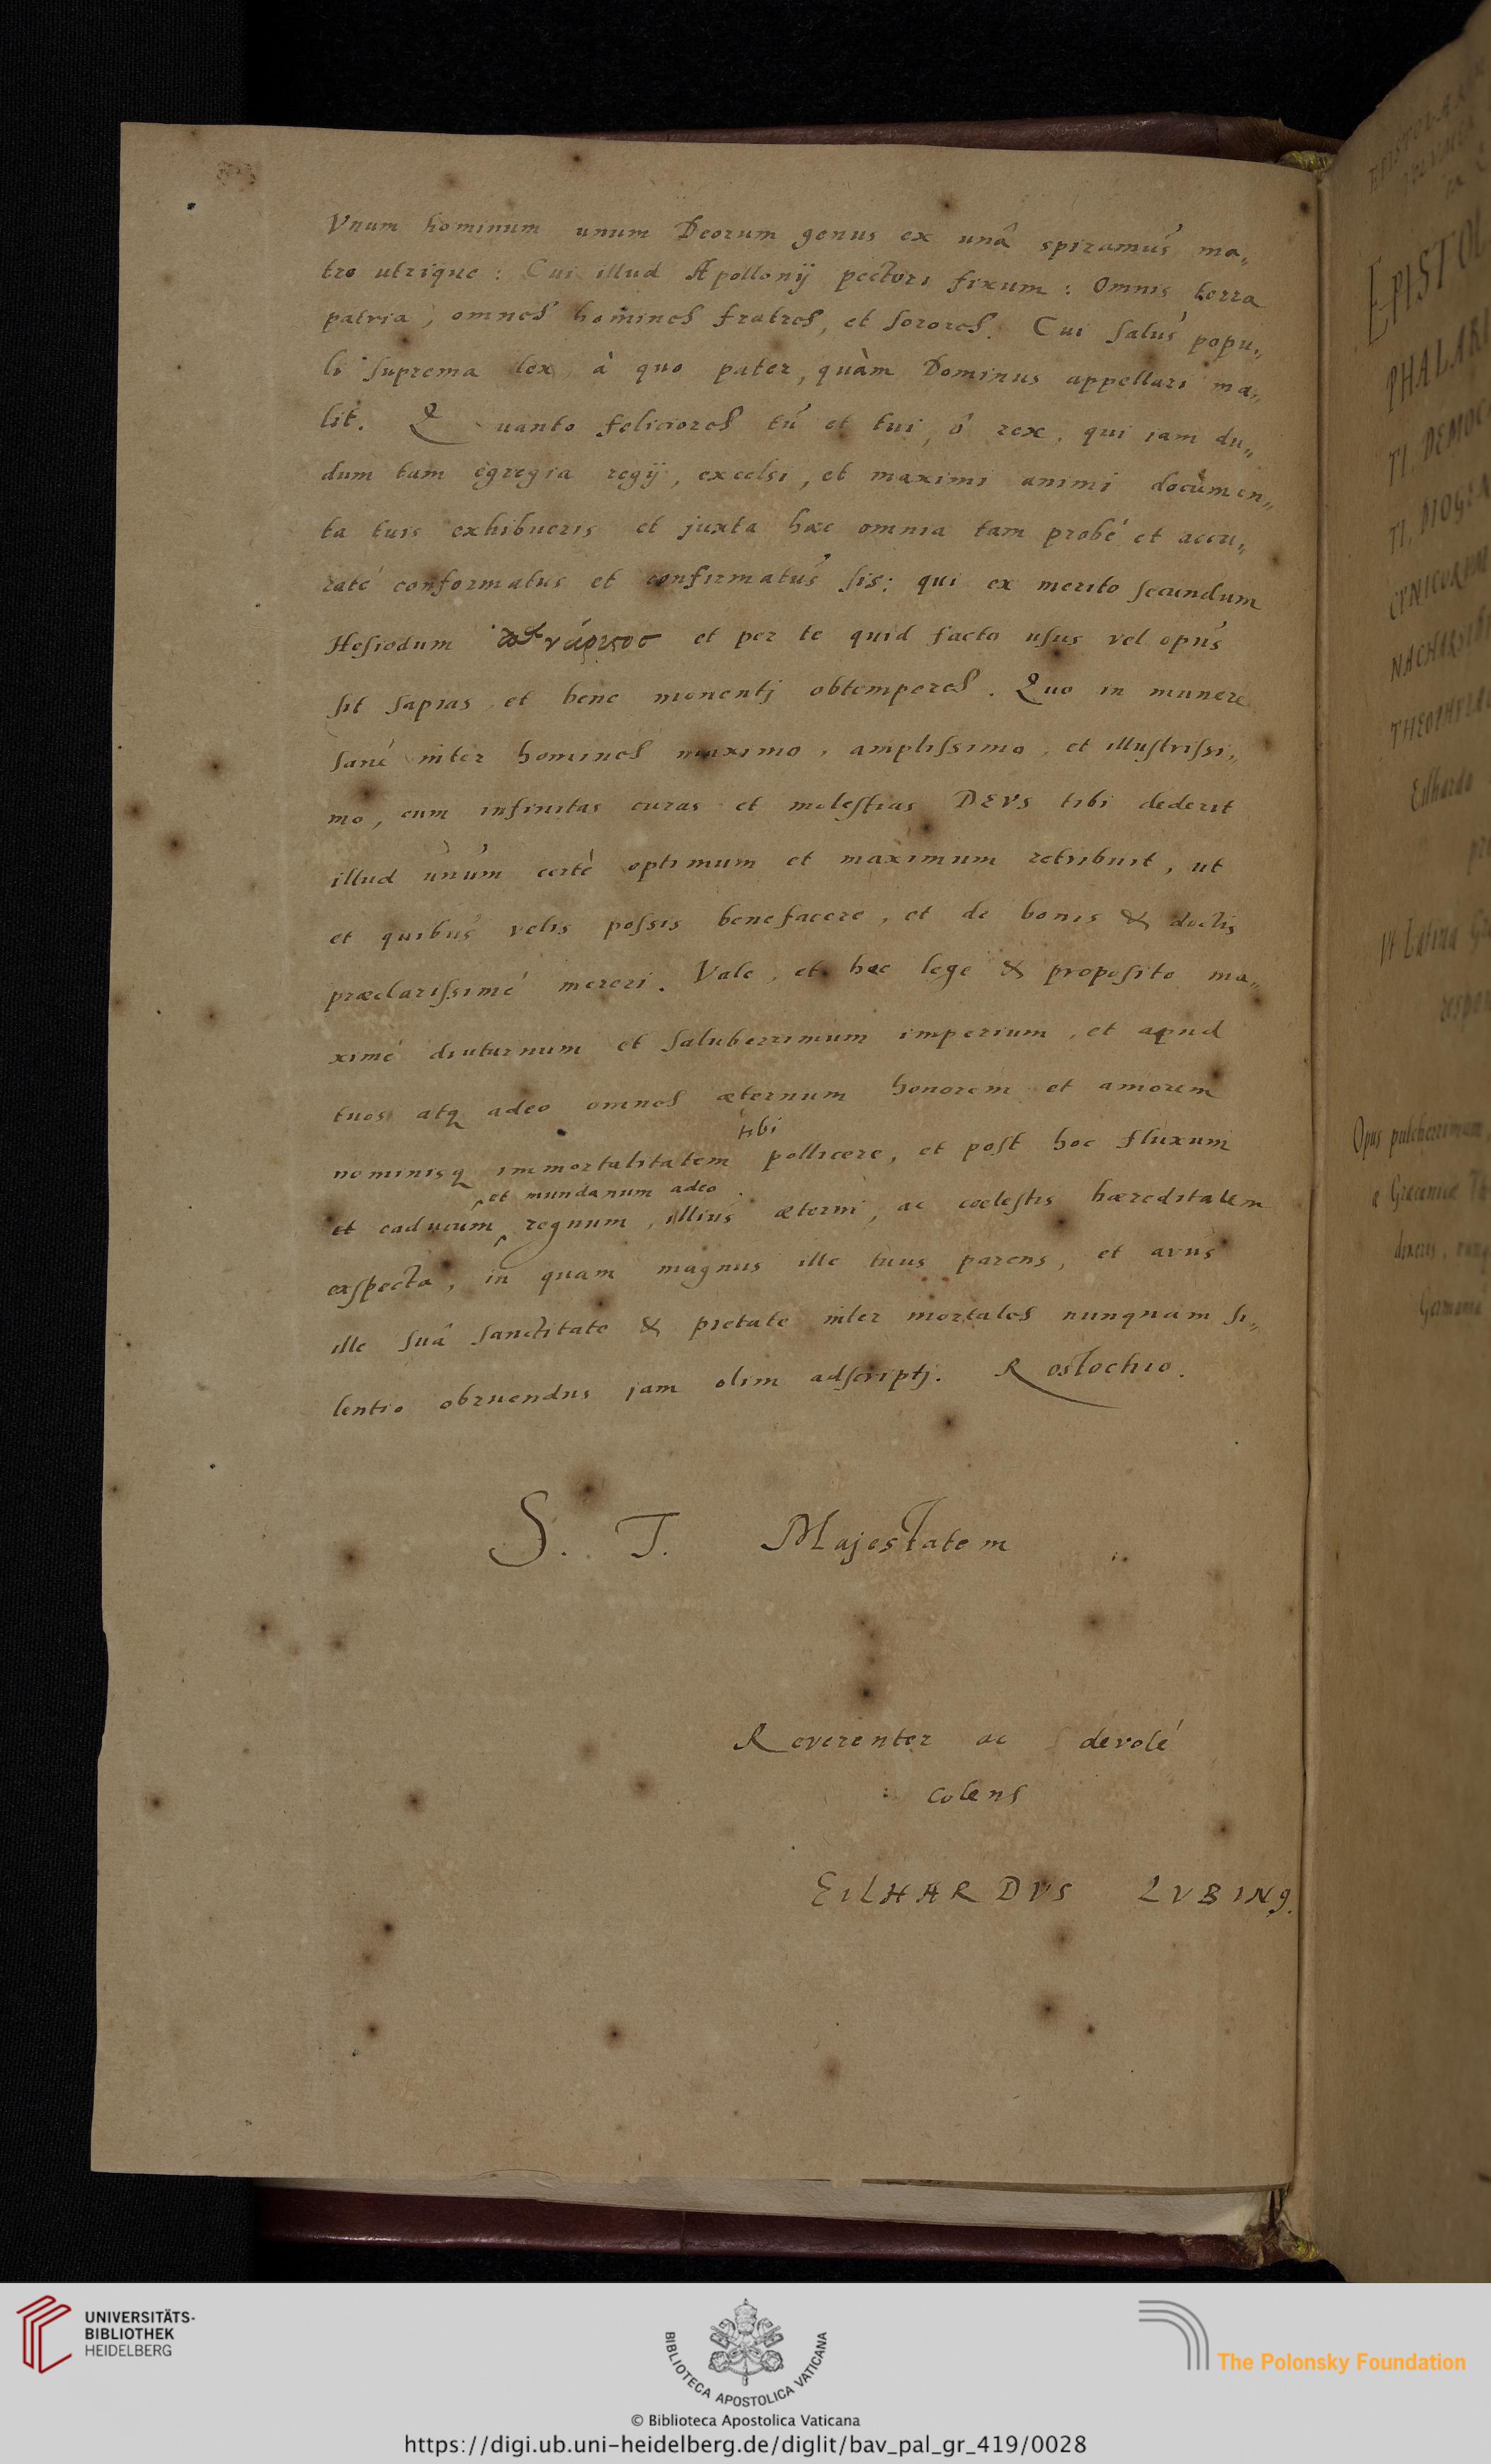 Vnum hominum unum Deorum genus ex unâ spiramus ma„
tre utrique : Cui illud Apollonij pectori fixum : Omnis terra
patria, omnes homines fratres, et sorores. Cui salus popu„
li suprema lex, à quo pater, quàm Dominus appellari ma„
lit. Quanto feliciores tu et tui, ô rex, qui iam du„
dum tam egregia regij, excelsi, et maximi animi documen„
ta tuis exhibueris et juxta hæc omnia tam probé et accu„
raté conformatus et confirmatus sis; qui ex merito secundum
Hesiodum et per te quid facto usus vel opus
sit sapias, et bene monentj obtemperes. Quo in munere
sané inter homines maximo, amplissimo, et illustrissi„
mo, cum infinitas curas et molestias DEVS tibi dederit
illud unum certè optimum et maximum retribuit, ut
et quibus velis possis benefacere, et de bonis & doctis
præclarissimé mereri. Vale, et hac lege & proposito ma„
ximé diuturnum et saluberrimum imperium, et apud
tuos atq adeo omnes æternum honorem et amorem
tibi
nominisq immortalitatem pollicere, et post hoc fluxum
et mundanum adeo
et caducum regnum, illius æterni, ac coelestis hæreditatem
exspecta, in quam magnus ille tuus parens, et avus
ille suâ sanctitate & pietate inter mortales nunquam si„
lentio obruendus jam olim adscriptj. Rostochio.
S. T. Majestatem
Reverenter ac devoté
colens
EILHARDVS LVBIN9.
EPISTOL
PHALARI
TI, DEMOC
TI, DIOGEN
CYNICORVM
NACHARSI
THEOPHYLA
Eilhardo
Vt Latina
Opus pulcherrimum
Germania
UNIVERSITÄTS-
BIBLIOTHEK
HEIDELBERG
BIBLIOTECA APOSTOLICA VATICANA
The Polonsky Foundation
© Biblioteca Apostolica Vaticana
https://digi.ub.uni-heidelberg.de/diglit/bav_pal_gr_419/0028